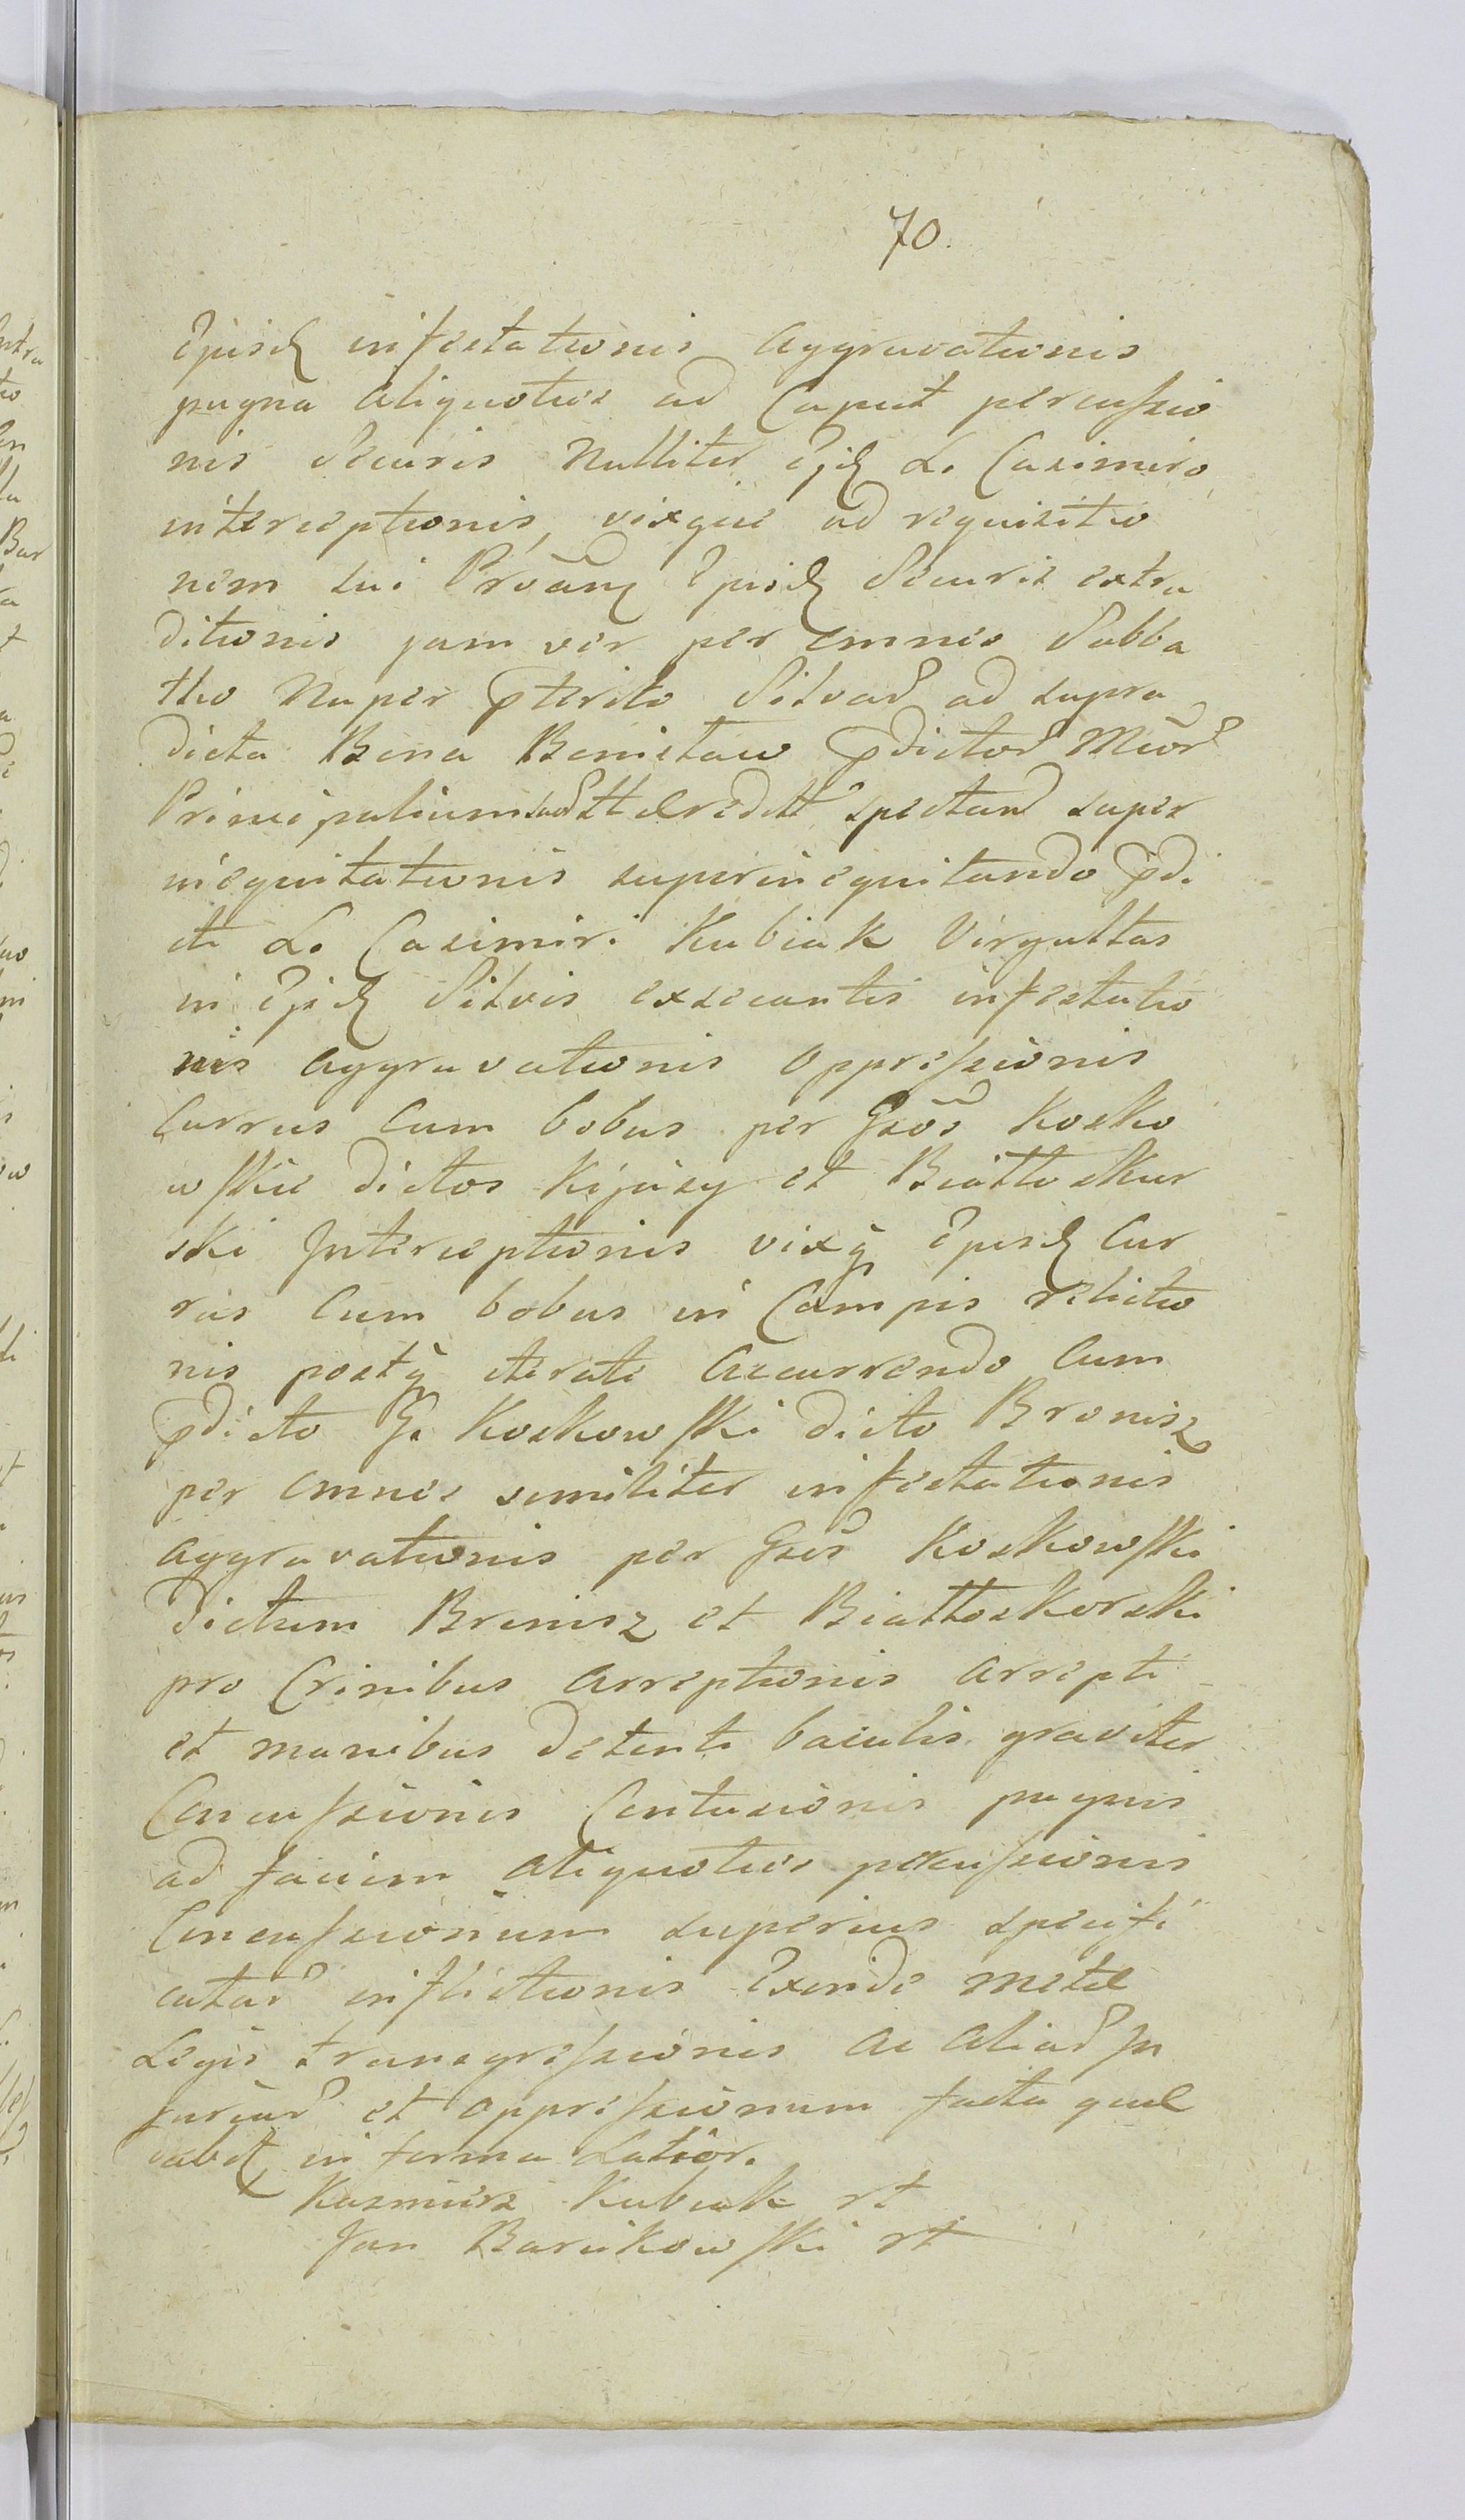 70.
Ejusd infestationis aggravationis
pugna aliquoties ad Caput percussio
nis Securis Nulliter Ejd L. Casimiro
interceptionis, vixque ad requisitio
nem sui Ejusd Securis extra
ditionis jam ver per omnes Sabba
tho Nuper pterito Silvar ad supra
dicta Bona Bonislaw pdictor
Principalium spectan super
inequitationis superinequitando pdi
cti L. Casimiri Kubiak Virgultas
in Ejsd Silvis exsecantis infestatio
nis aggravationis oppressionis
Currus Cum bobus per Gsos Kosko
wskie dictos Kijasy et Biattoskur
ski Interceptionis vixq Ejusd Cur
rus Cum bobus in Campis relictio
nis postq iterato accurrendo Cum
pdicto G. Koskowski dicto Bronisz
per omnes similiter infestationis
aggravationis per Gsos Koskowski
dictum Bronisz et Biattoskorski
pro Crinibus arreptionis arrepti
et manibus detenti baculis graviter
Concussionis Contusionis pugnis
ad faciem aliquoties percussionis
Concussionum superius specifi
catar inflictionis Exinde
Legis transgressionis ac aliar In
juriar et oppressionum facta
in forma Latior.
Kazmierz Kubiak rt
Jan Barcikowski rt